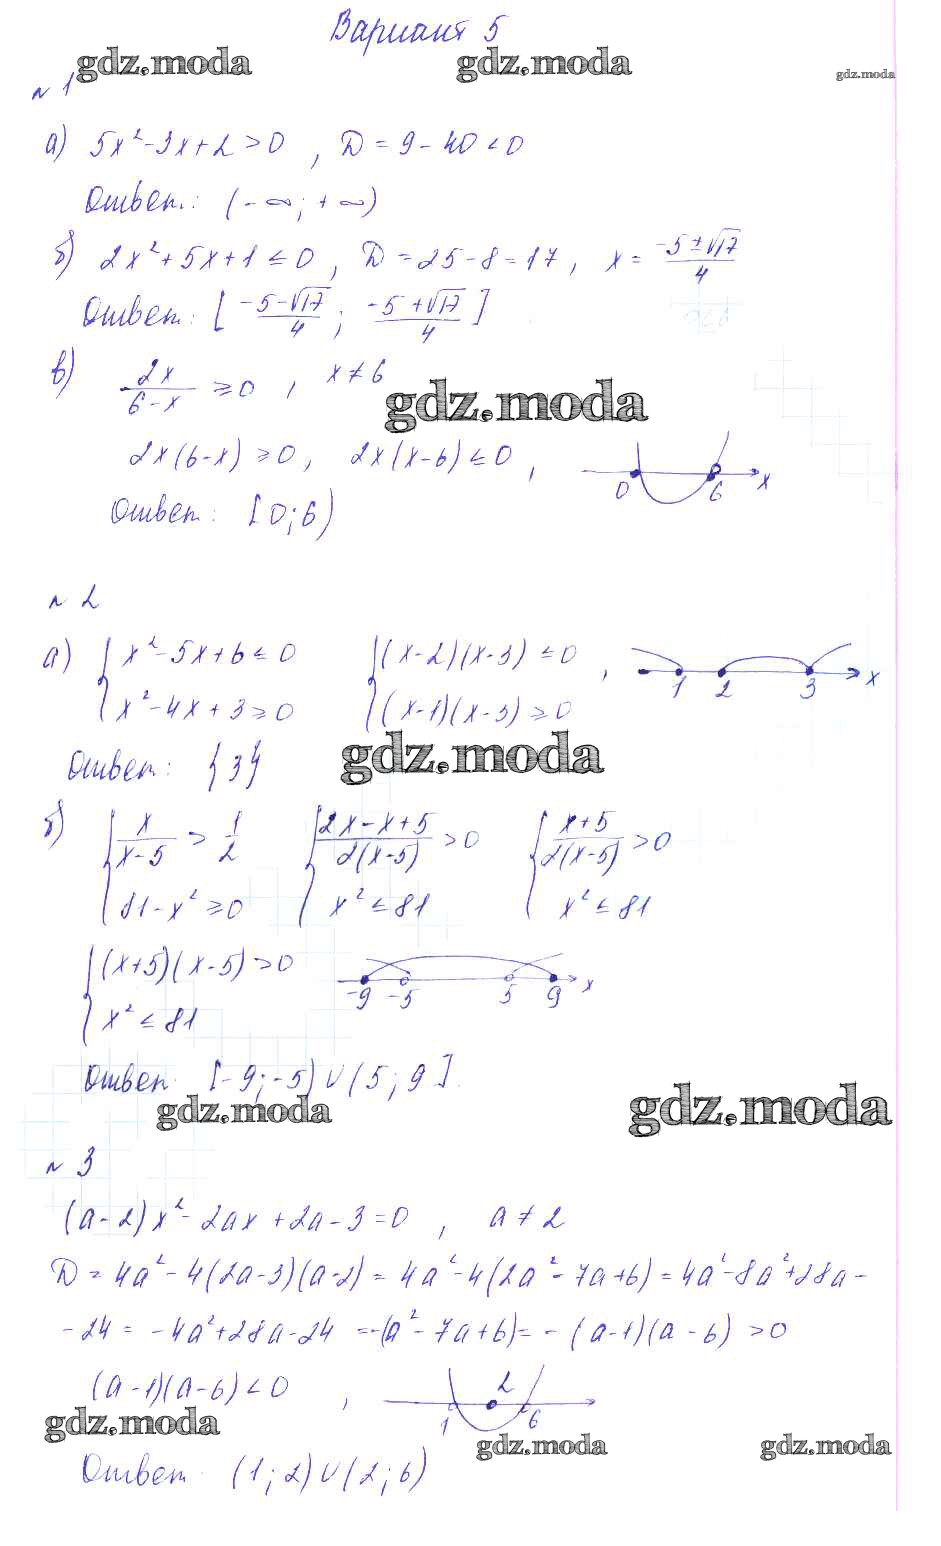 Вариант 5
gdz.moda gdz.moda gdz.moda
№ 1
а) 5x² - 3x + 2 > 0 , D = 9 - 40 < 0
Ответ: (-∞; +∞)
б) 2x² + 5x + 1 ≤ 0 , D = 25 - 8 = 17 , x = (-5 ± √17)/4
Ответ: [(-5 - √17)/4 ; (-5 + √17)/4]
в) 2x/(6 - x) ≥ 0 , x ≠ 6
gdz.moda
2x(6 - x) ≥ 0 , 2x(x - 6) ≤ 0 , 0 6 x
Ответ: [0; 6)
№ 2
а) { x² - 5x + 6 ≤ 0 { (x - 2)(x - 3) ≤ 0 , 1 2 3 x
{ x² - 4x + 3 ≥ 0 { (x - 1)(x - 3) ≥ 0
gdz.moda
Ответ: {3}
б) { x/(x - 5) > 1/2 { (2x - x + 5)/(2(x - 5)) > 0 { (x + 5)/(2(x - 5)) > 0
{ 81 - x² ≥ 0 { x² ≤ 81 { x² ≤ 81
{ (x + 5)(x - 5) > 0 -9 -5 5 9 x
{ x² ≤ 81
Ответ. [-9; -5) ∪ (5; 9].
gdz.moda gdz.moda
№ 3
(a - 2)x² - 2ax + 2a - 3 = 0 , a ≠ 2
D = 4a² - 4(2a - 3)(a - 2) = 4a² - 4(2a² - 7a + 6) = 4a² - 8a² + 28a -
- 24 = -4a² + 28a - 24 = -(a² - 7a + 6) = -(a - 1)(a - 6) > 0
(a - 1)(a - 6) < 0 , 1 2 6
gdz.moda gdz.moda gdz.moda
Ответ. (1; 2) ∪ (2; 6)